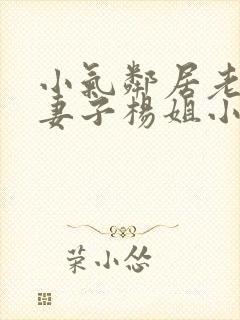 小氣鄰居老
妻子楊姐小
菜小怂